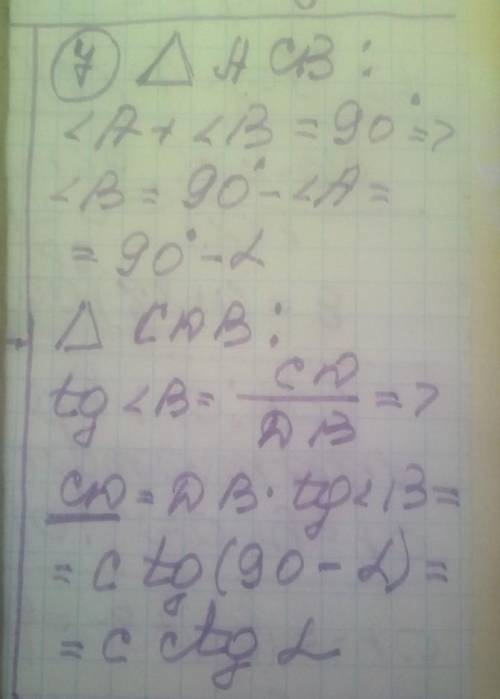 7 △ ACB:
∠A + ∠B = 90° =>
∠B = 90° - ∠A =
= 90° - α
△ CDB:
tg ∠B = CD / DB =>
CD = DB · tg ∠B =
= c tg (90 - α) =
= c ctg α